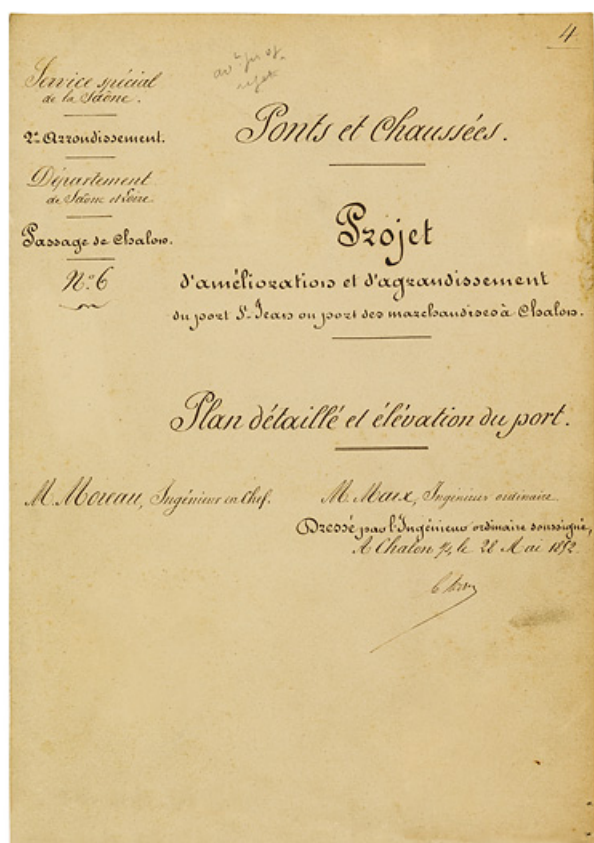 4
Service spécial
de la Saône.
2e Arrondissement.
Département
de Saône et Loire.
Passage de Chalon.
N.° 6
Ponts et Chaussées.
Projet
d'amélioration et d'agrandissement
du port St Jean ou port des marchandises à Chalon.
Plan détaillé et élévation du port.
M. Moreau, Ingénieur en Chef.
M. Marx, Ingénieur ordinaire.
Dressé par l'Ingénieur ordinaire soussigné,
A Chalon s/s le 28 Mai 1852